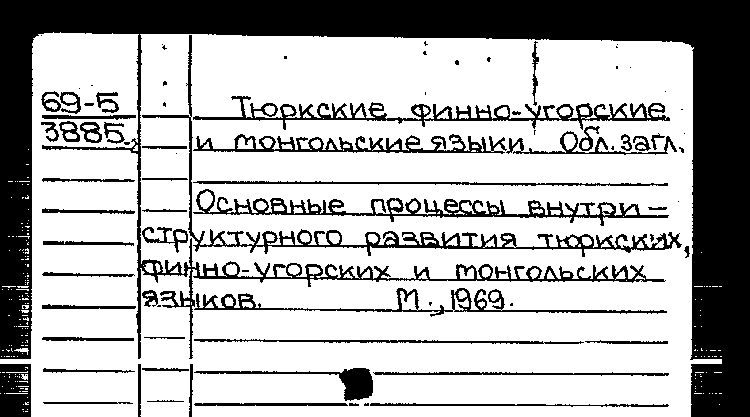 69-5 Тюркские, финно-угорские
3885 и монгольские языки. Обл. загл.
Основные процессы внутри-
структурного развития тюркских,
финно-угорских и монгольских
языков. М., 1969.